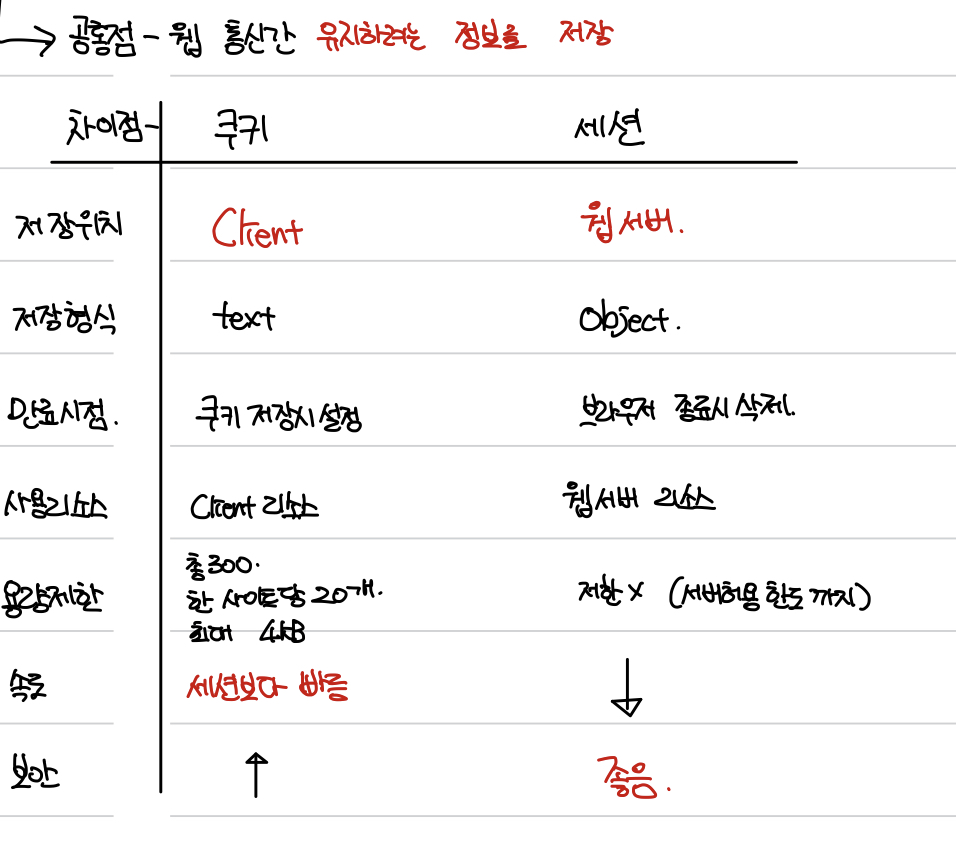 → 공통점 - 웹 통신간 유지하려는 정보를 저장
차이점 - 쿠키 세션
저장위치 Client 웹서버.
저장형식 text Object.
만료시점. 쿠키 저장시 설정 브라우저 종료시 삭제.
사용리소스 Client 리소스 웹서버 리소스
용량제한 총 300. 제한 X (서버허용 한도 까지)
한 사이트당 20개.
최대 4KB
속도 세션보다 빠름 ↓
보안 ↑ 좋음.